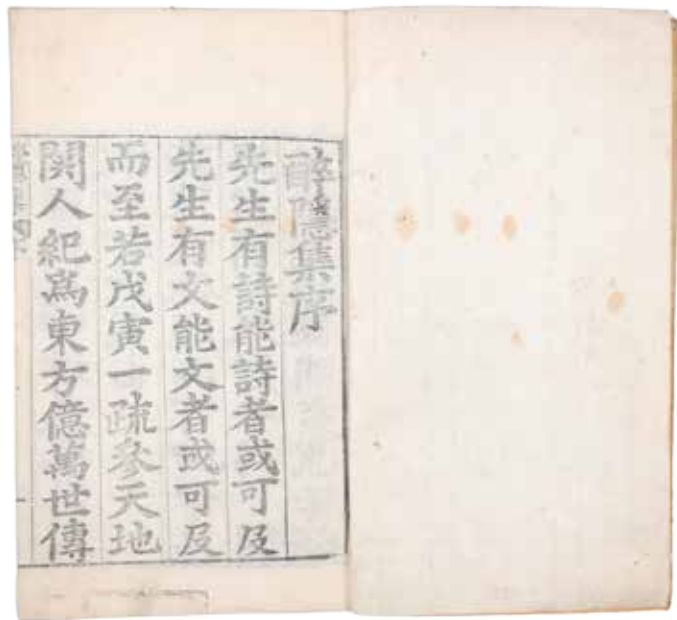 醉隱集序
先生有詩能詩者或可及
先生有文能文者或可及
而至若戊寅一疏叅天地
関人紀爲東方億萬世傳